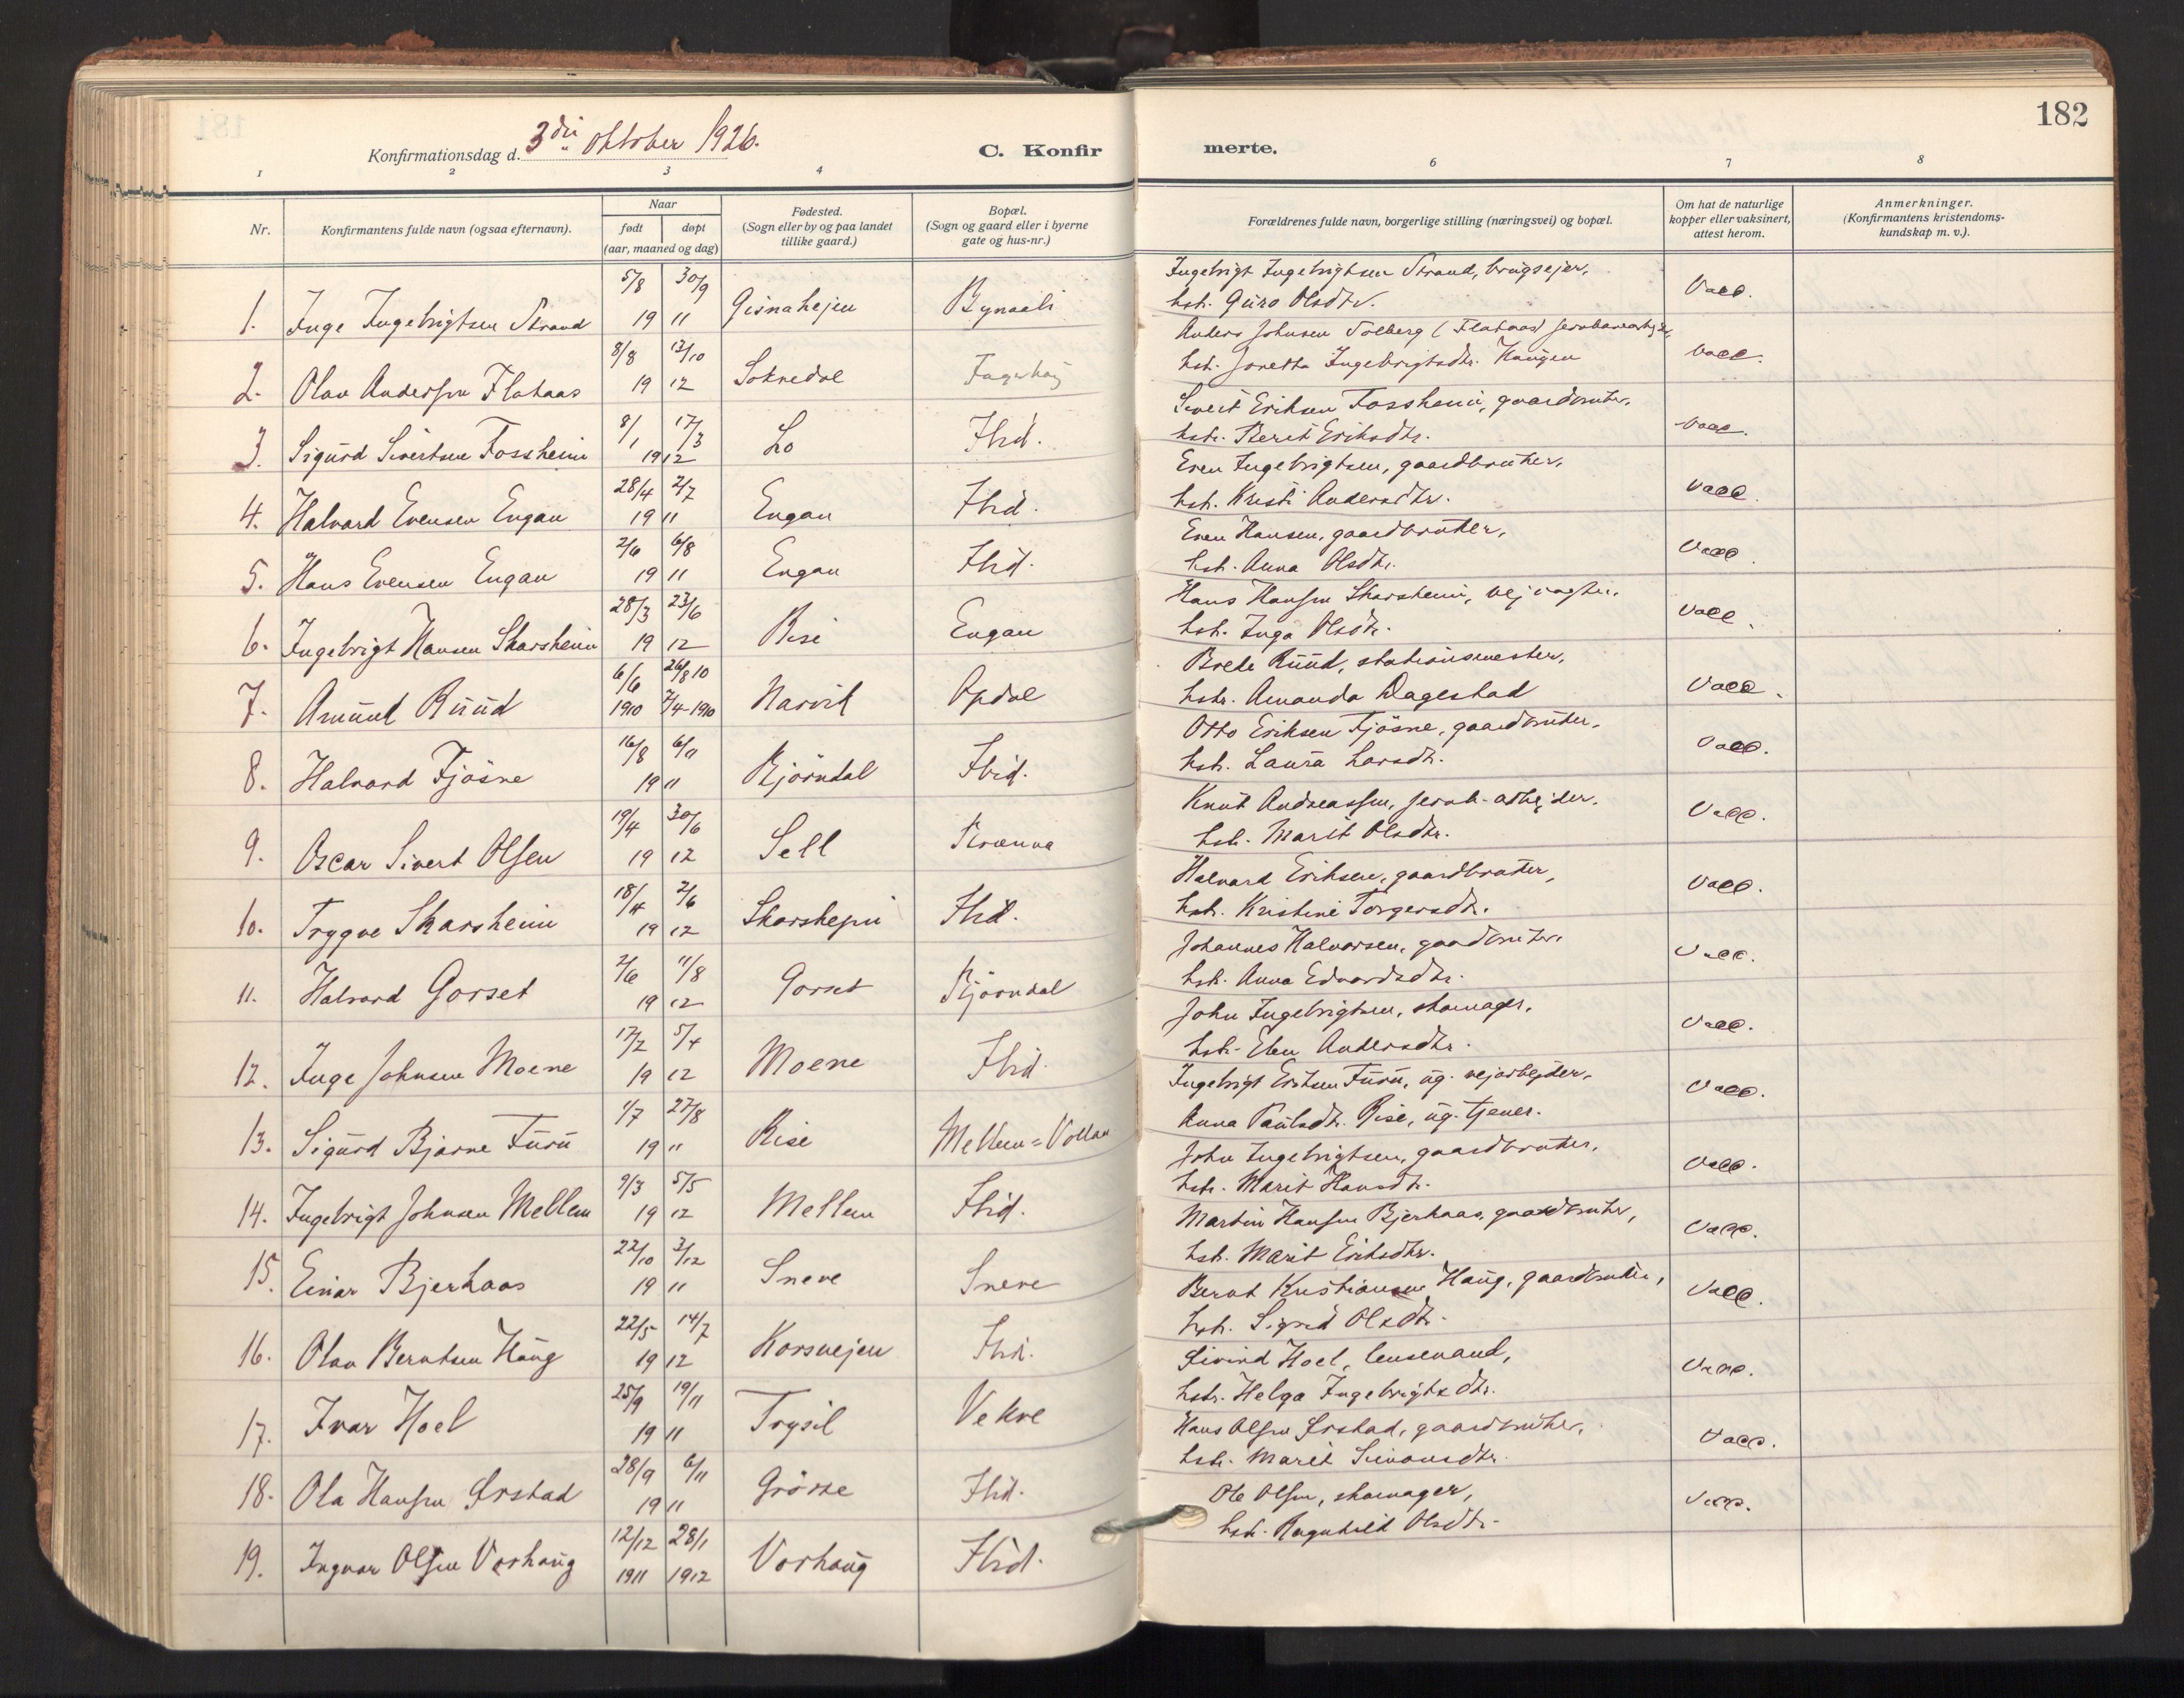 182
Konfirmationsdag d. 3die oktober 1926.
C. Konfir
merte.
1 2 3 4
6 7 8
Nr.
Konfirmantens fulde navn (ogsaa efternavn).
Naar
født døpt
(aar, maaned og dag)
Fødested.
(Sogn eller by og paa landet
tillike gaard.)
Bopæl.
(Sogn og gaard eller i byerne
gate og hus-nr.)
Forældrenes fulde navn, borgerlige stilling (næringsvei) og bopæl.
Om hat de naturlige
kopper eller vaksinert,
attest herom.
Anmerkninger.
(Konfirmantens kristendoms-
kundskap m. v.).
5/8 30/9
1. Inge Ingebrigtsen Strand 19 11 Gisnahejen
Ingebrigt Ingebrigtsen Strand, brugsejer,
hst. Guro Olsdtr. Vacc.
8/8 13/10
2. Olav Andersen Flahaas 19 12 Soknedal Fagerhaug
Anders Johnsen Solberg (Flahaas)
hst. Jonetta Ingebrigtsdtr. Haugen Vacc.
8/1 17/3
3. Sigurd Sivertsen Fossheim 1912 Lo Ibid.
Sivert Eriksen Fossheim, gaardbruker,
hstr. Berit Eriksdtr. Vacc.
28/4 2/7
4. Halvard Evensen Engan 19 11 Engan Ibid.
Even Ingebrigtsen, gaardbruker,
hst. Kristi Andersdtr. Vacc.
2/6 6/8
5. Hans Evensen Engan 19 11 Engan Ibid.
Even Hansen, gaardbruker,
hst. Anna Olsdtr. Vacc.
28/3 23/6
6. Ingebrigt Hansen Skarsheim 19 12 Rise Engan
Hans Hansen Skarsheim, vejvogter,
hst. Inga Olsdtr. Vacc.
6/6 26/8 10
7. Amund Ruud 1910 7/4-1910 Narvik Opdal
Brede Ruud, stationsmester,
hstr. Amanda Dagestad Vacc.
16/8 6/11
8. Halvard Fjøsne 19 11 Bjørndal Ibid.
Otto Eriksen Fjøsne, gaardbruker,
hst. Laura Larsdtr. Vacc.
19/4 30/6
9. Oscar Sivert Olsen 19 12 Sell
Knut Andreassen, jernb.-arbejder,
hst. Marit Olsdtr. Vacc.
18/4 2/6
10. Trygve Skarsheim 19 12 Skarshejm Ibid.
Halvard Eriksen, gaardbruker,
hst. Kristine Torgersdtr. Vacc.
2/6 11/8
11. Halvard Gorset 19 12 Gorset Bjørndal
Johannes Halvorsen, gaardbruker,
hst. Anna Edvardsdtr. Vacc.
17/2 5/4
12. Inge Johnsen Moene 19 12 Moene Ibid.
John Ingebrigtsen, skomager,
hst. Elen Andersdtr. Vacc.
1/7 27/8
13. Sigurd Bjarne Furu 19 11 Rise Mellem=Vollan
Ingebrigt Eriksen Furu, ug. vejarbejder,
Anna Paulsdtr. Rise, ug. tjener. Vacc.
9/3 5/5
14. Ingebrigt Johnsen Mellem 19 12 Mellem Ibid.
John Ingebrigtsen, gaardbruker,
hst. Marit Hansdtr. Vacc.
22/10 3/12
15. Einar Bjerkaas 19 11 Sneve Sneve
Martin Hansen Bjerkaas, gaardbruker,
hst. Marit Eriksdtr. Vacc.
22/5 14/7
16. Olav Berntsen Haug 19 12 Korsvejen Ibid.
Bernt Kristiansen Haug, gaardbruker,
hst. Sigrid Olsdtr. Vacc.
25/9 19/11
17. Ivar Hoel 19 11 Trysil Vekve
Eivind Hoel, lensmand,
hstr. Helga Ingebrigtsdtr. Vacc.
28/9 6/11
18. Ola Hansen Ørstad 19 11 Grøtte Ibid.
Hans Olsen Ørstad, gaardbruker,
hst. Marit Simonsdtr. Vacc.
12/12 28/1
19. Ingvar Olsen Vorhaug 1911 1912 Vorhaug Ibid.
Ole Olsen, skomager,
hst. Ragnhild Olsdtr. Vacc.